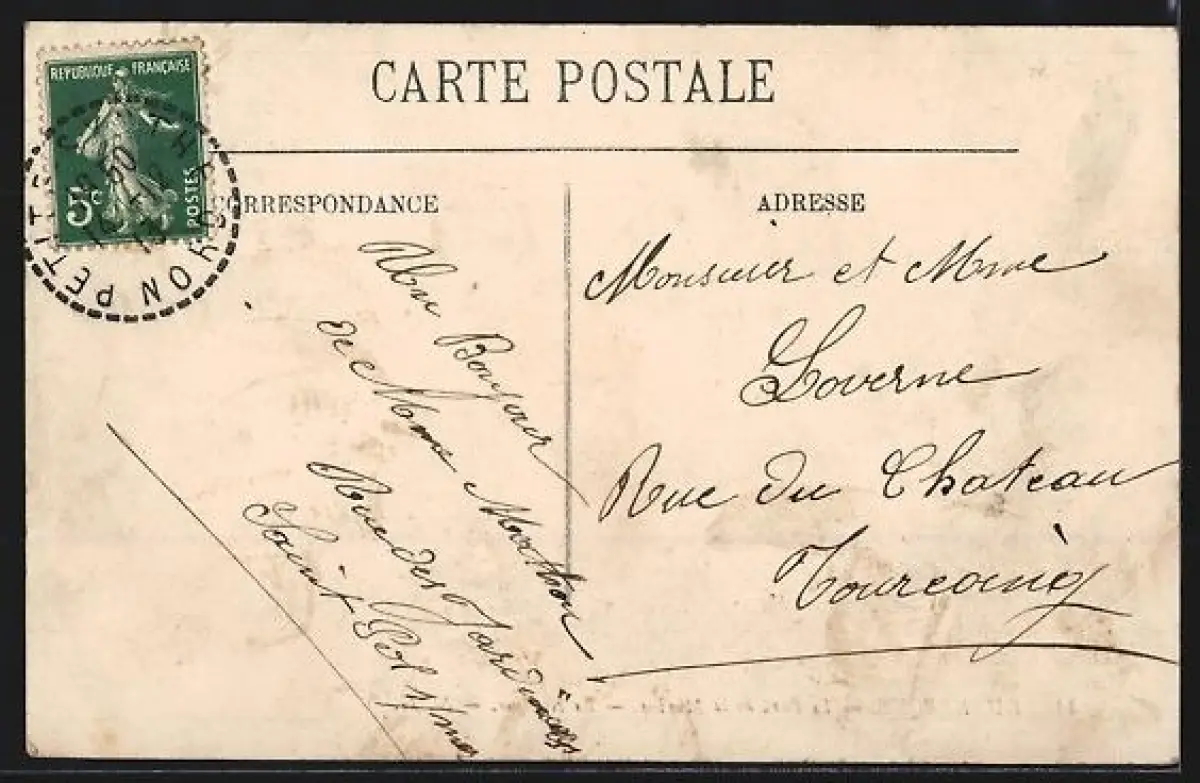 CARTE POSTALE
REPUBLIQUE FRANÇAISE
5c
POSTES
PETIT
CORRESPONDANCE
ADRESSE
Bonjour
de Mme
Rue des Jardiniers
Saint Pol s/mer
Monsieur et Mme
Loverne
Rue du Chateau
Tourcoing